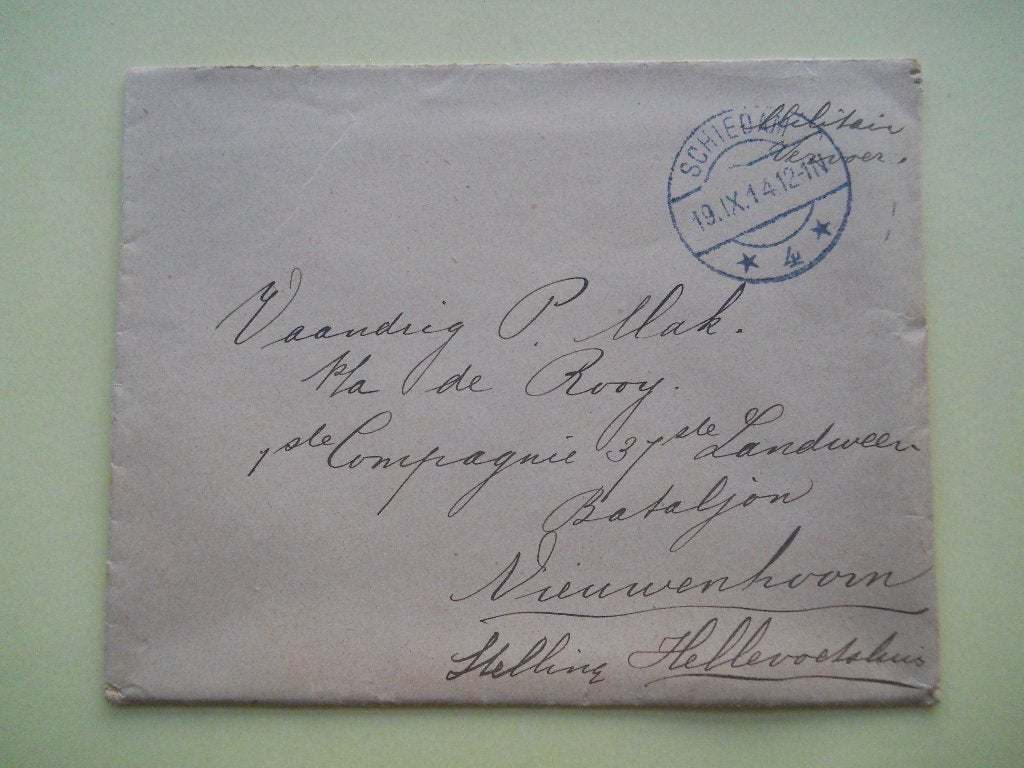 Militair
Vervoer.
SCHIEDAM
19.IX.14.12-1N
4
Vaandrig P. Mak.
p/a de Rooy.
1ste Compagnie 37ste Landweer
Bataljon
Nieuwenhoorn
Stelling Hellevoetsluis